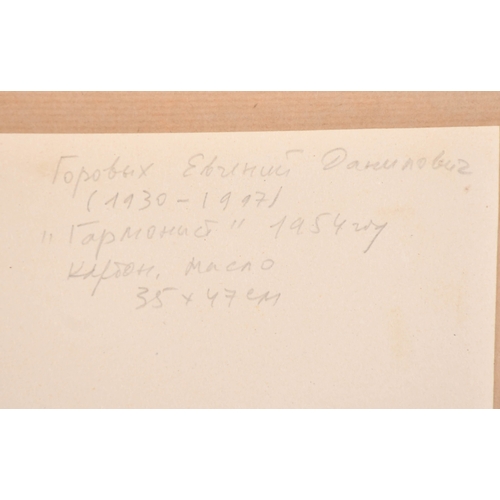 Горовых Евгений Данилович
(1930-1997)
"Гармонист" 1954 году
картон, масло
35 x 47 см